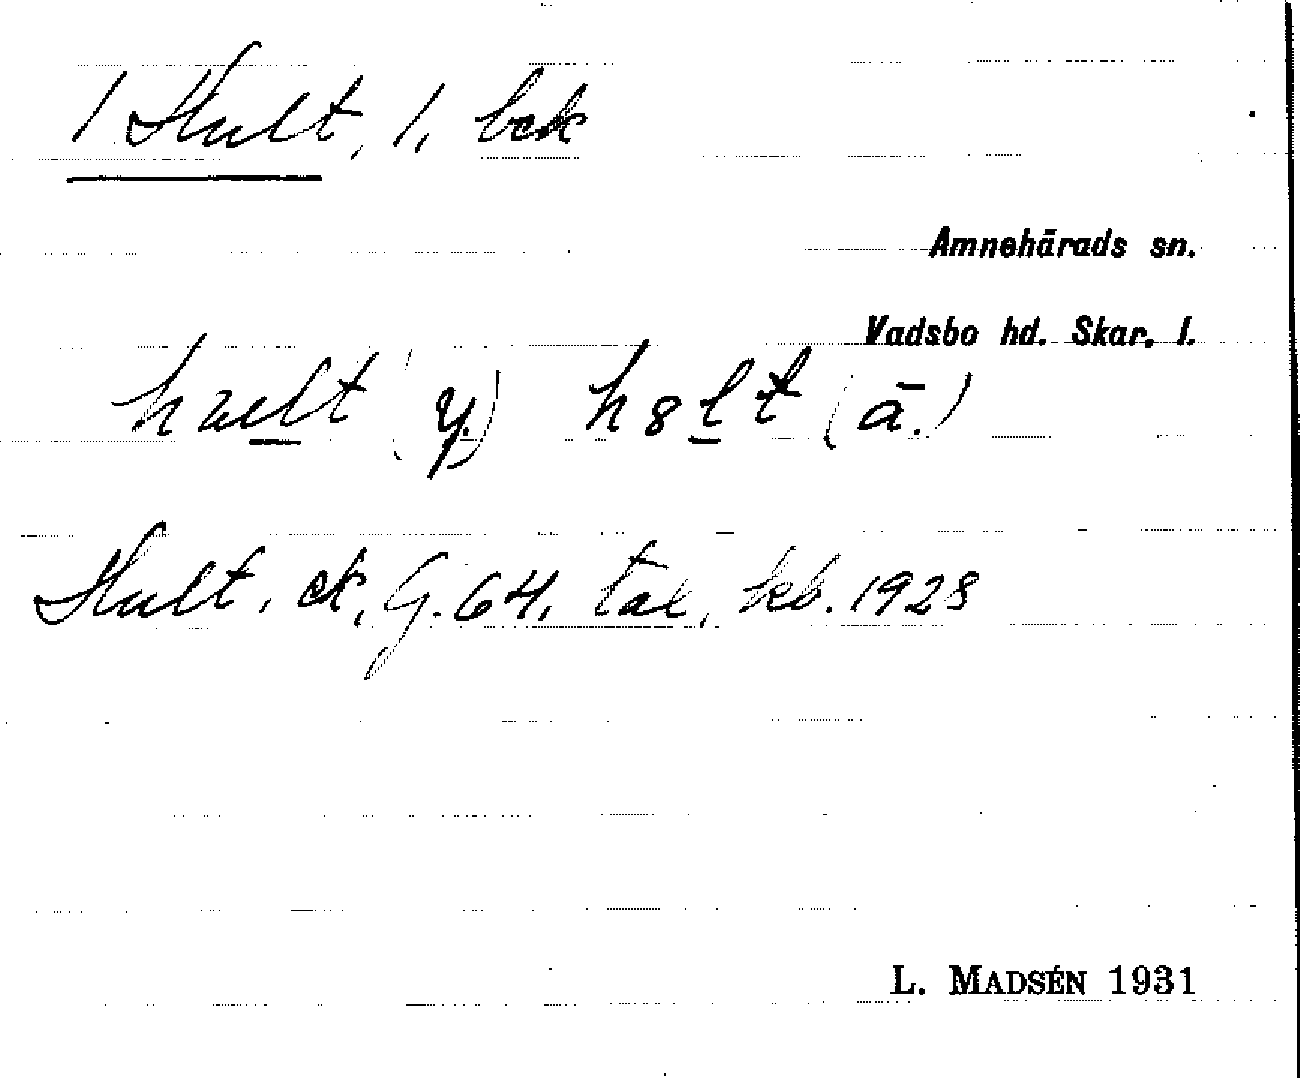 1 Hult, 1, bck
Amnehärads sn.
Vadsbo hd. Skar. l.
hult (y.) h8lt (ā.)
Hult, ck, G. 64, tal, kb. 1928
L. MADSÉN 1931